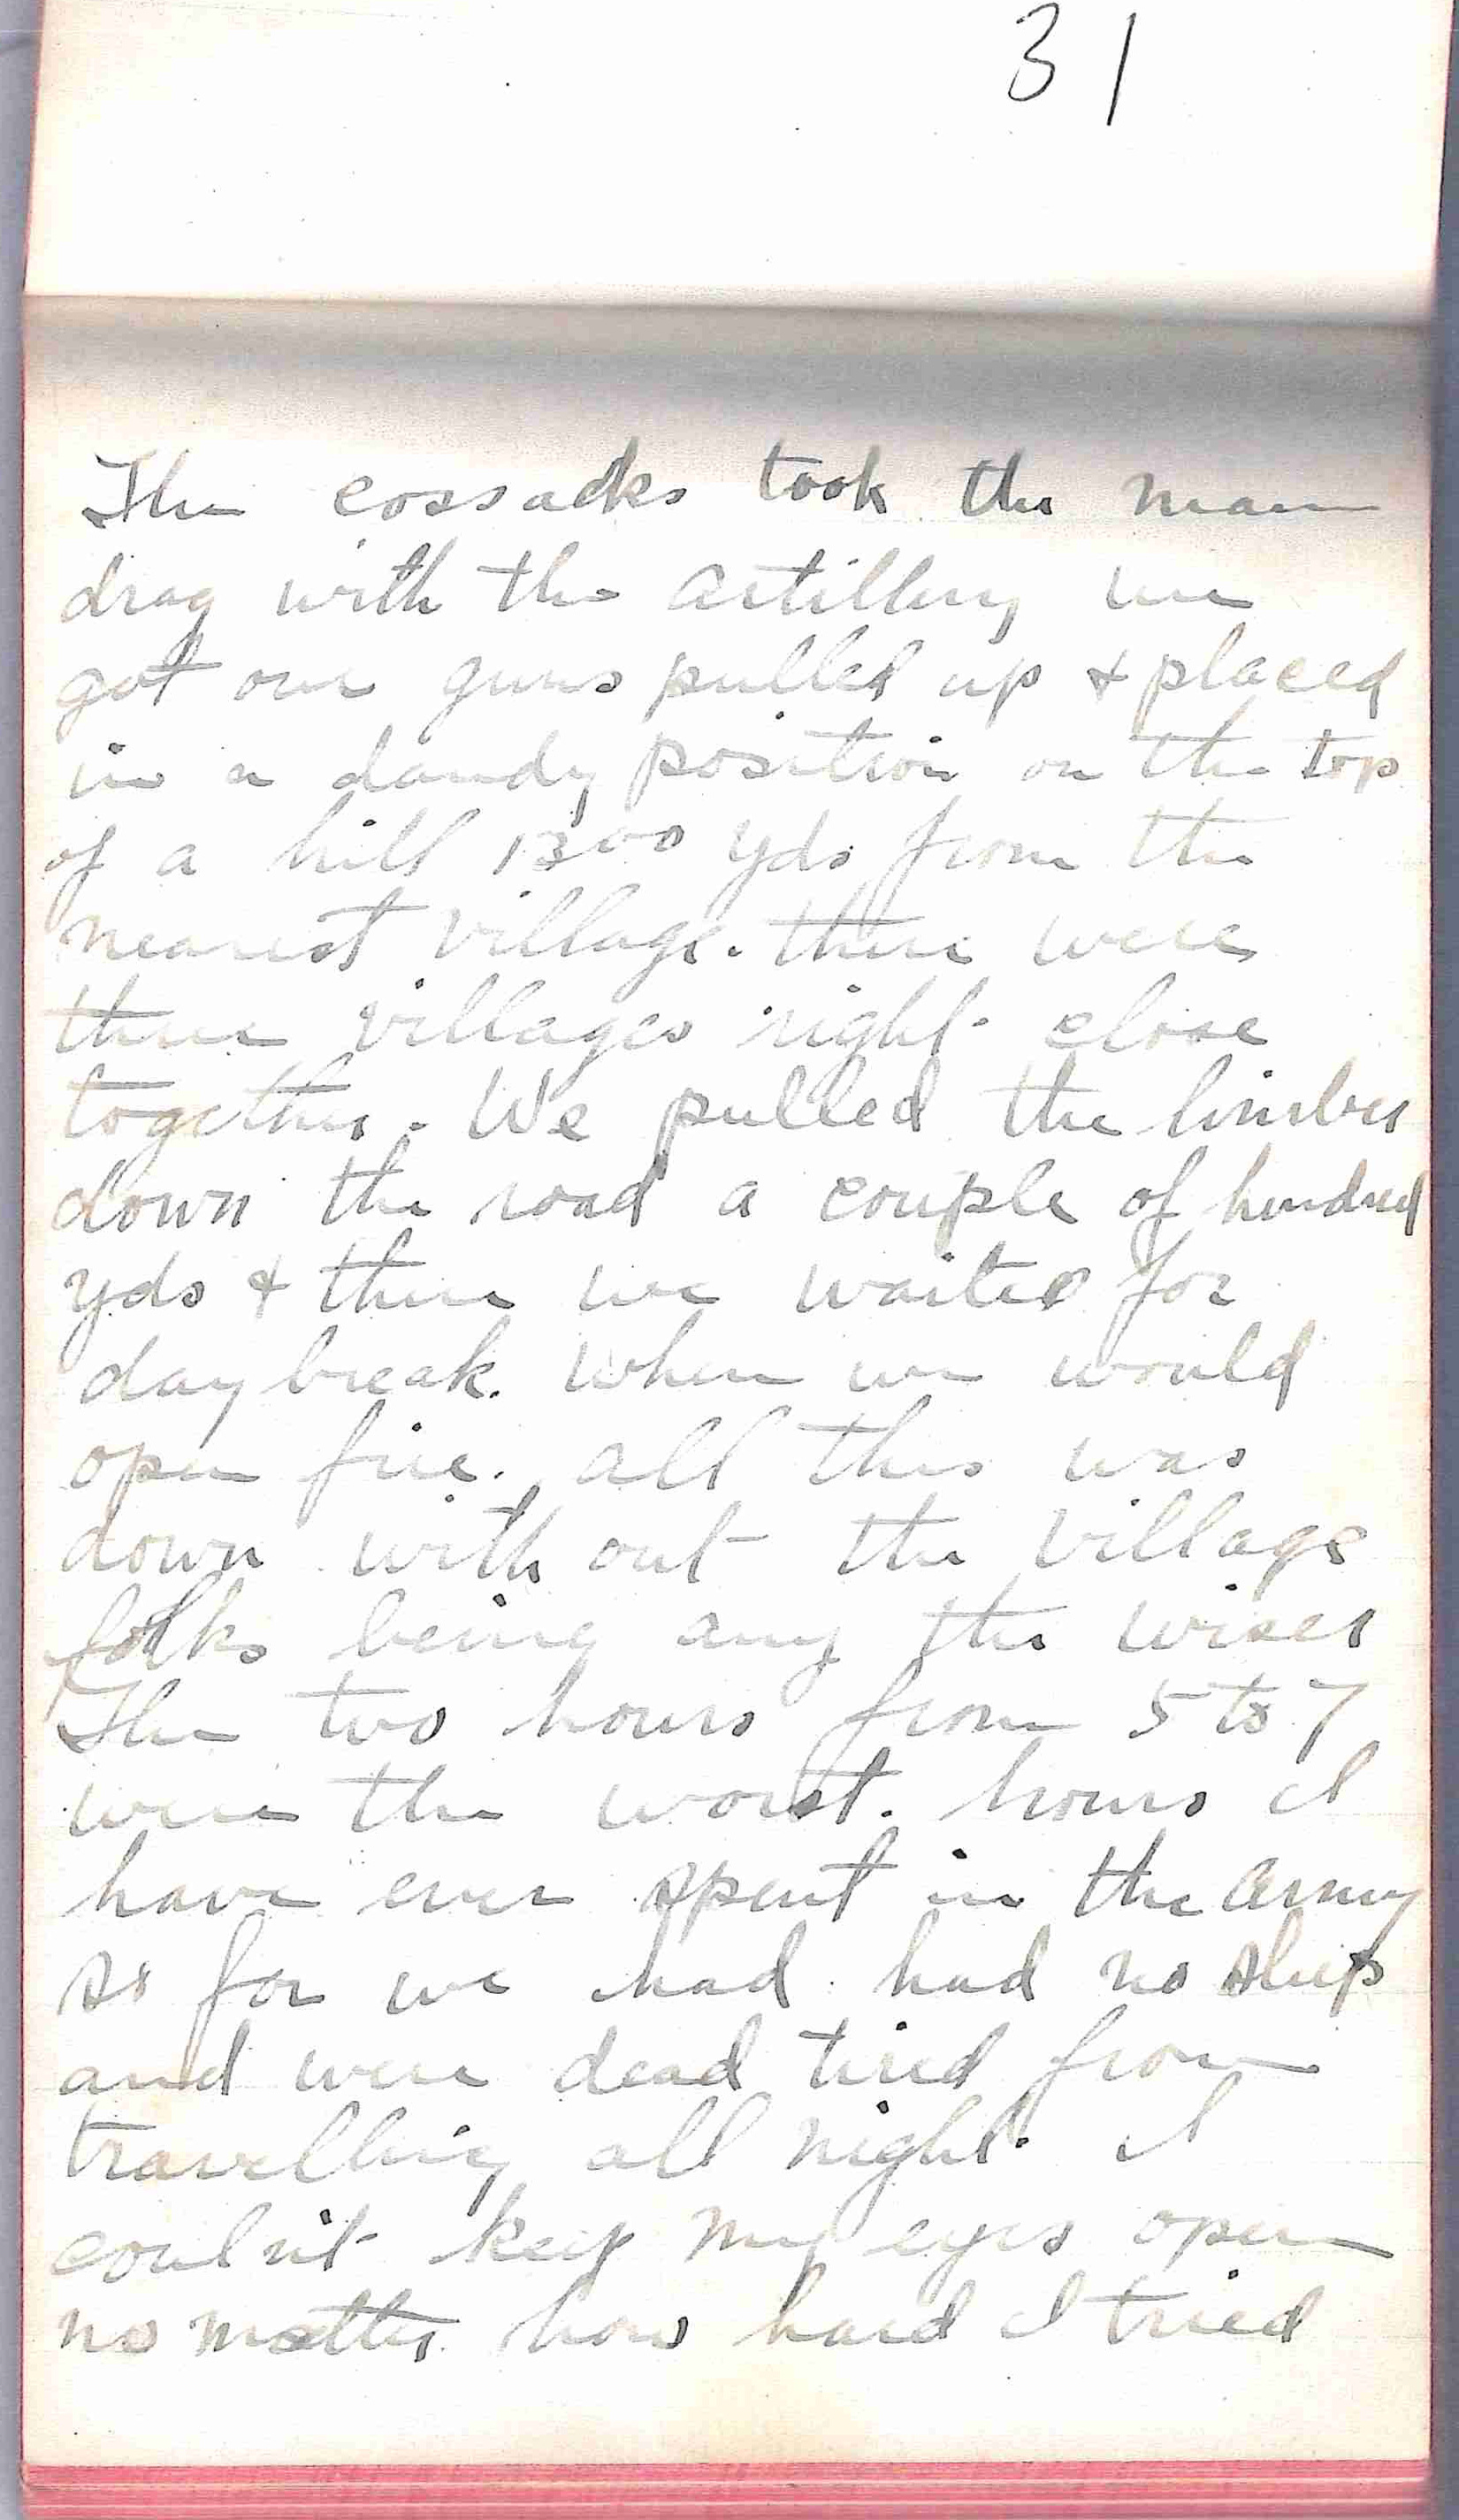 31
The cossacks took the main
drag with the artillery we
got our guns pulled up & placed
in a dandy position on the top
of a hill 1300 yds from the
nearest village. there were
three villages right close
together. We pulled the limber
down the road a couple of hundred
yds & there we waited for
day break. when we would
open fire. all this was
down with out the village
folks being any the wiser
The two hours from 5 to 7
were the worst. hours I
have ever spent in the army
so far we had had no sleep
and were dead tired from
travelling all night. I
couln't keep my eyes open
no matter how hard I tried